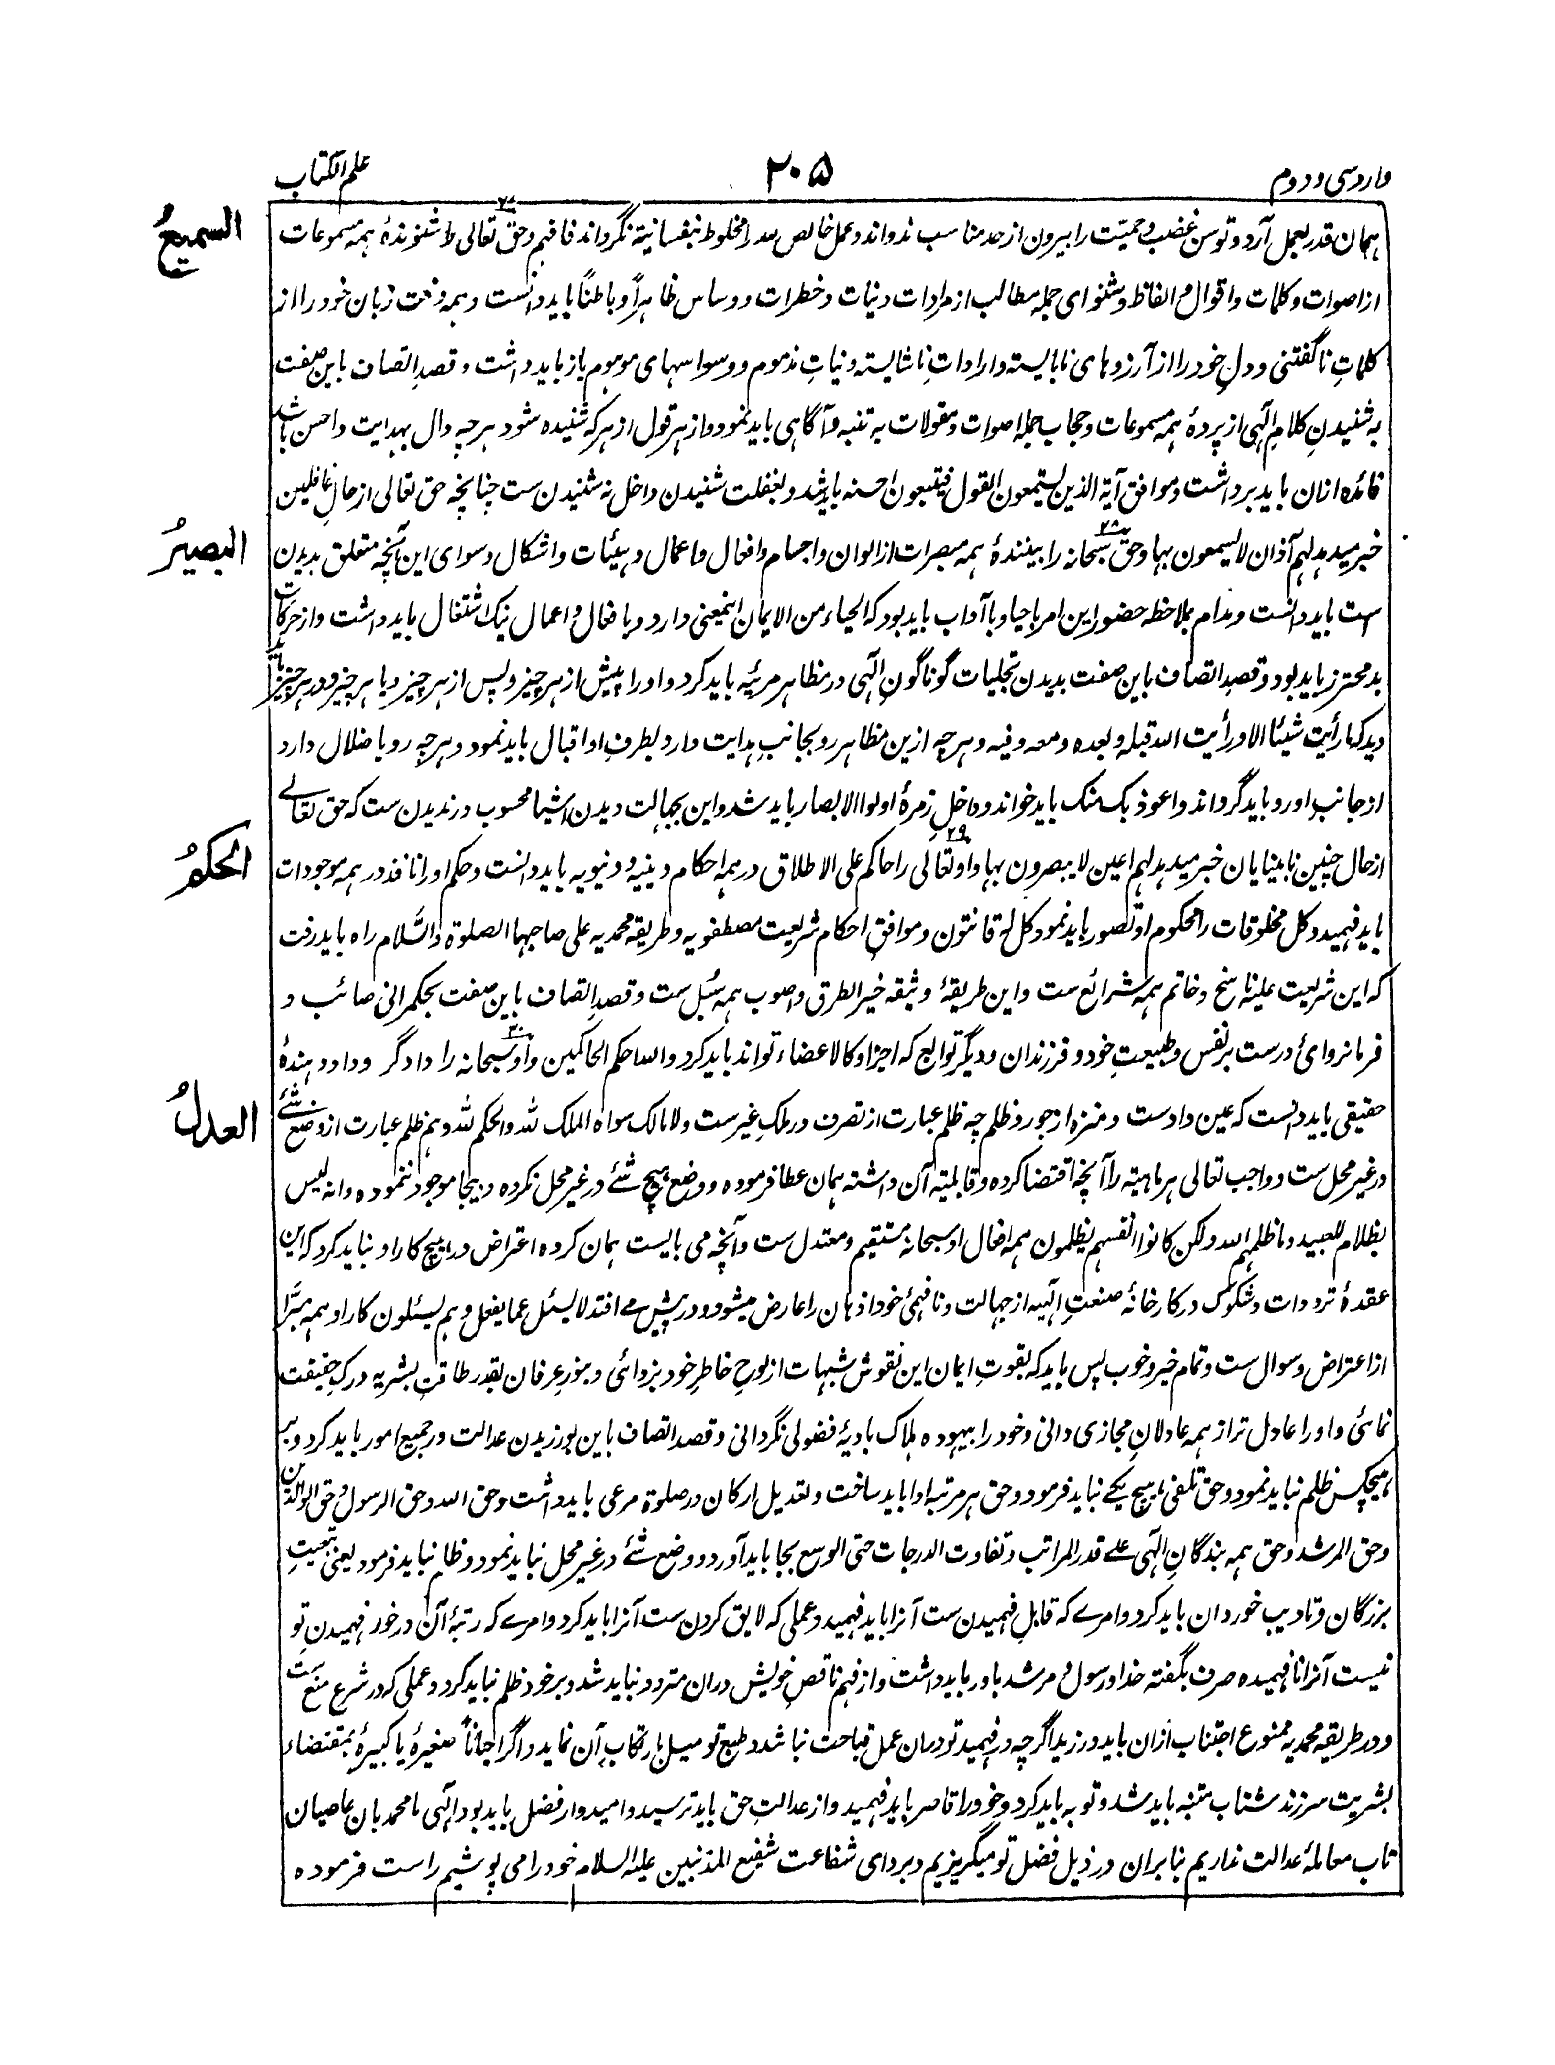 وارد سی و دوم ۲۰۵ علم الکتاب
همان قدر بعمل آرد و توسن غضب و حمیّت را بیرون از حد مناسب ندواند و عمل خالص را مخلوط بنفسانیة نگرداند فافهم و حق تعالی را شنوندهٔ همه مسموعات
السمیعُ
از اصوات و کلمات و اقوال و الفاظ و شنوای جمله مطالب از مرادات و نیات و خطرات و وساس ظاهراً و باطناً باید دانست و همه وقت زبان خود را از
کلماتِ ناگفتنی و دلِ خود را از آرزوهای نابایسته و اراداتِ ناشایسته و نیاتِ مذموم و وسواسهای موهوم باز باید داشت و قصدِ اتصاف باین صفت
به شنیدنِ کلامِ الٓهی از پردهٔ همه مسموعات و حجاب جمله اصوات و مقولات به تنبه و آگاهی باید نمود و از هر قول از هر که شنیده شود هر چه دال بهدایت و احسن باشد
فائده ازان باید برداشت و موافق آیة الذین یستمعون القول فیتبعون احسنه باید شد و بغفلت شنیدن داخل نه شنیدن ست چنانچه حق تعالی از حالِ غافلین
خبر میدهد لهم آذان لا یسمعون بها و حق سبحانه را بینندهٔ همه مبصرات از الوان و اجسام و افعال و اعمال و هیئات و اشکال و سوای این آنچه متعلق بدیدن
البصیرُ
ست باید دانست و مدام بملاحظه حضور این امر باحیا و باآداب باید بود که الحیاء من الایمان اینمعنی دارد و با فعال و اعمال نیک اشتغال باید داشت و از حرکات
بد محترز باید بود و قصد اتصاف باین صفت بدیدن تجلیات گوناگونِ الٓهی در مظاهر مرئیه باید کرد و او را پیش از هر چیز و پس از هر چیز و با هر چیز و در هر چیز باید
دید که ما رأیت شیئا الا و رأیت الله قبله و بعده و معه و فیه و هر چه ازین مظاهر رو بجانبِ هدایت دارد بطرفِ او اقبال باید نمود و هر چه رو با ضلال دارد
از جانبِ او رو باید گرداند و اعوذ بک منک باید خواند و داخلِ زمرهٔ اولوا الابصار باید شد و این بجهالت دیدن اشیا محسوب در ندیدن ست که حق تعالے
از حال چنین نابینایان خبر میدهد لهم اعین لا یبصرون بها و او تعالی را حاکم علی الاطلاق در همه احکام دینیه و دنیویه باید دانست و حکم او را نافذ در همه موجودات
الحکمُ
باید فهمید و کل مخلوقات را محکوم او تصور باید نمود کل له قانتون و موافقِ احکام شریعت مصطفویه و طریقه محمدیه علی صاحبها الصلوة والسَّلام راه باید رفت
که این شریعت علیا ناسخ و خاتم همه شرائع ست و این طریقهٔ وثیقه خیر الطرق و اصوب همه سُبُل ست و قصدِ اتصاف باین صفت بحکمرانی صائب و
فرمانروائ درست بر نفس و طبیعتِ خود و فرزندان و دیگر توابع که اجزا و کالاعضاء تواند باید کرد والله احکم الحاکمین و او سبحانه را دادگر و داد دهندهٔ
حقیقی باید دانست که عین دادست و منزه از جور و ظلم چه ظلم عبارت از تصرف در ملکِ غیر ست و لا مالک سواه الملک لله والحکم لله و هم ظلم عبارت از وضع شئے
العدلُ
در غیر محل ست و واجب تعالی هر ماهیة را آنچه اقتضا کرده و قابلیتِ آن داشته همان عطا فرموده و وضع هیچ شئے در غیر محل نکرده و بیجا موجود ننموده و انه لیس
بظلام للعبید و ما ظلمهم الله ولکن کانوا انفسهم یظلمون همه افعال او سبحانه مستقیم و معتدل ست و آنچه می بایست همان کرده اعتراض در هیچ کار او نباید کرد که این
عقدهٔ ترددات و شکوک در کارخانهٔ صنعتِ الٓهیه از جهالت و نافهمیٔ خود اذهان را عارض میشود و در پیش مے افتد لا یسئل عما یفعل و هم یسئلون کار او همه مبرَّا
از اعتراض و سوال ست و تمام خیر و خوب پس باید که بقوتِ ایمان این نقوش شبهات از لوحِ خاطرِ خود بزدائی و بنورِ عرفان بقدر طاقتِ بشریه درکِ حقیقت
نمائی و او را عادل تر از همه عادلانِ مجازی دانی و خود را بیهوده هلاک بادیهٔ فضولی نگردانی و قصد اتصاف باین بورزیدن عدالت در جمیع امور باید کرد و بر
هیچکس ظلم نباید نمود و حق تلفی هیچ یکے نباید فرمود و حق هر مرتبه ادا باید ساخت و تعدیل ارکان در صلوة مرعی باید داشت و حق الله و حق الرسول و حق الوالدین
و حق المرشد و حق همه بندگانِ الٓهی علے قدر المراتب و تفاوت الدرجات حتی الوسع بجا باید آورد و وضع شئے در غیر محل نباید نمود و ظلم نباید فرمود یعنی تبعیتِ
بزرگان و تادیب خوردان باید کرد و امرے که قابلِ فهمیدن ست آنرا باید فهمید و عملی که لایق کردن ست آنرا باید کرد و امرے که رتبهٔ آن در خور فهمیدنِ تو
نیست آنرا نافهمیده صرف بگفته خدا و رسول و مرشد باور باید داشت و از فهم ناقصِ خویش دران متردد نباید شد و بر خود ظلم نباید کرد و عملی که در شرع منع ست
و در طریقه محمدیه ممنوع اجتناب ازان باید ورزید اگرچه در فهمید تو دران عمل قباحت نباشد و طبع تو میل بارتکابِ آن نماید و اگر احیاناً صغیرهٔ یا کبیرهٔ بمقتضاء
بشریت سرزند شتاب متنبه باید شد و توبه باید کرد و خود را قاصر باید فهمید و از عدالتِ حق باید ترسید و امیدوار فضل باید بود الٓهی ما محمدیان عاصیان
تاب معاملهٔ عدالت نداریم بنابران در ذیل فضل تو میگریزیم و بردای شفاعت شفیع المذنبین علیه السلام خود را می پوشیم راست فرموده